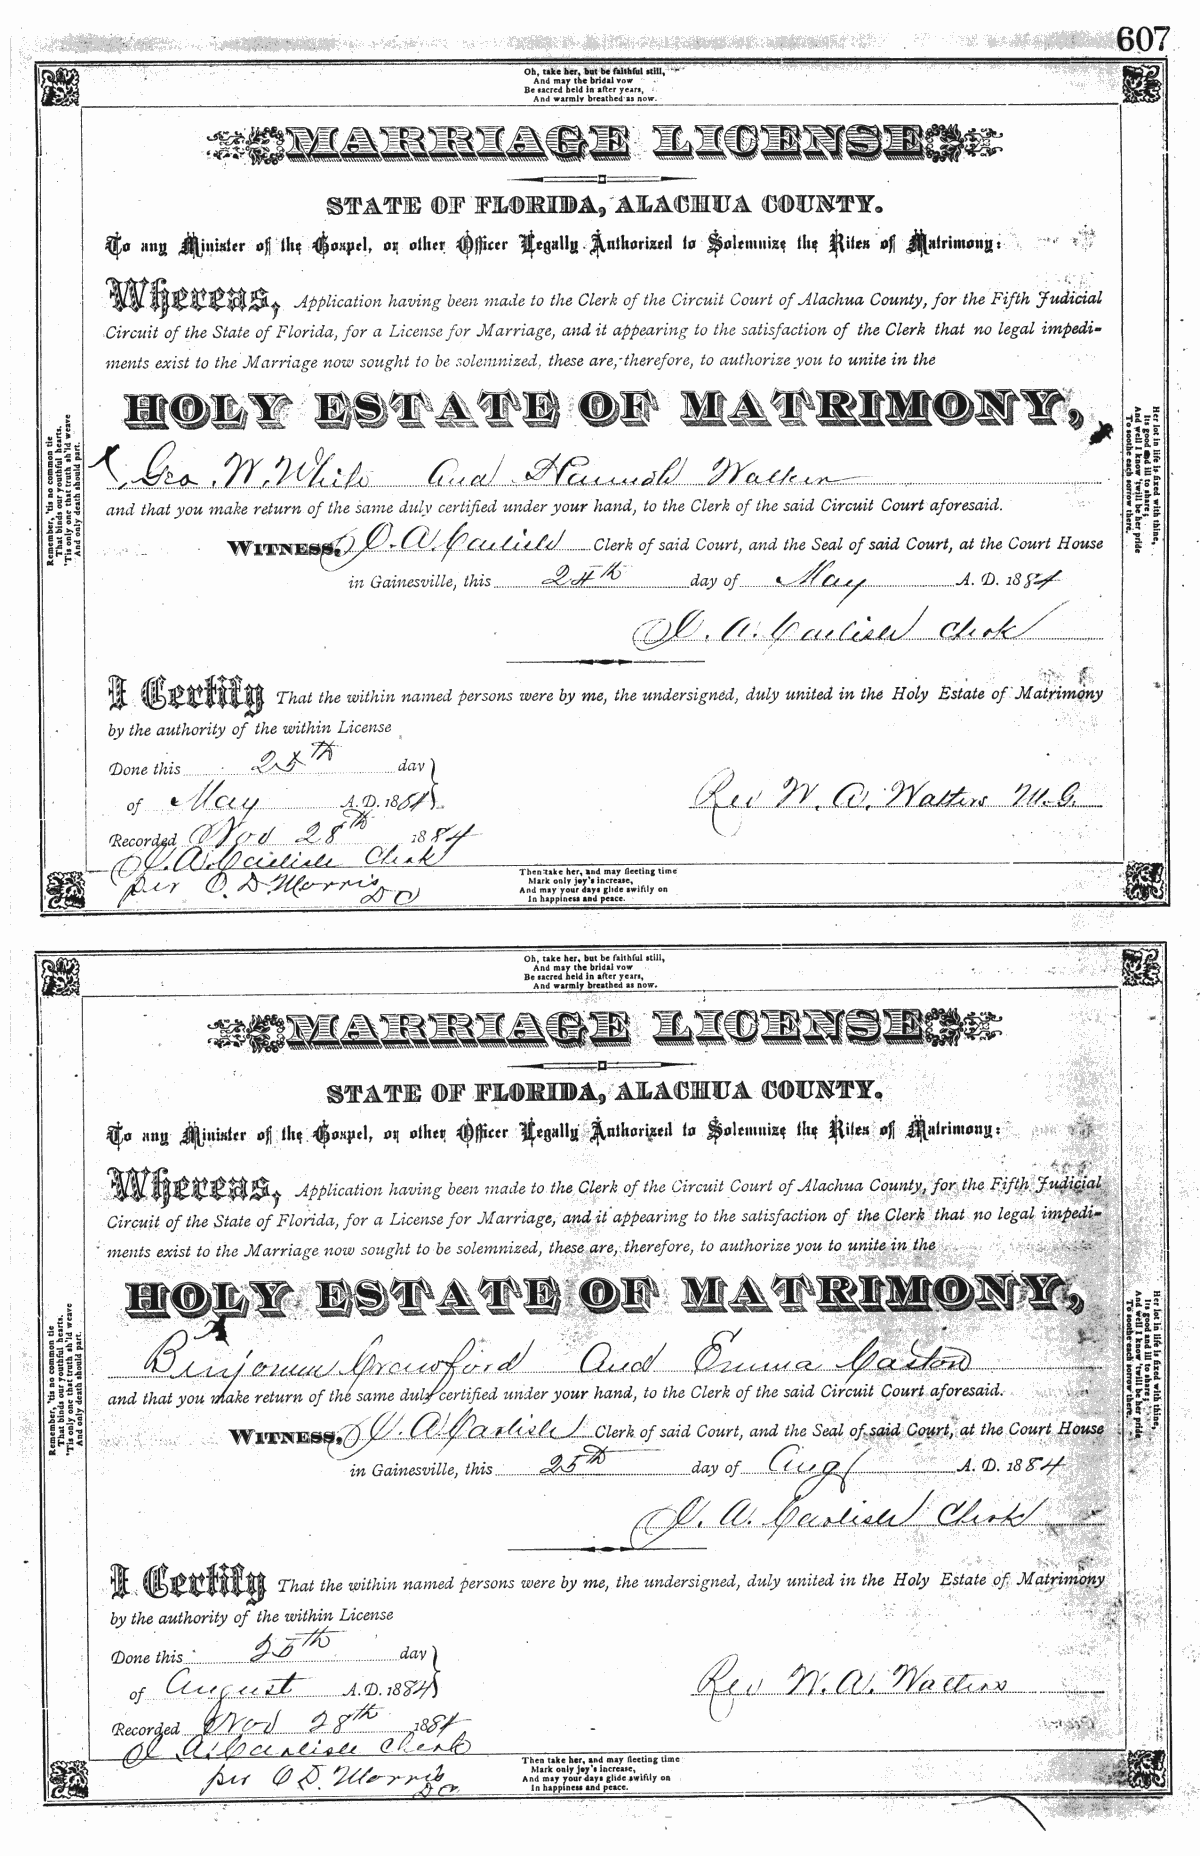 607
Oh, take her, but be faithful still,
And may the bridal vow
Be sacred held in after years,
And warmly breathed as now.
MARRIAGE LICENSE
STATE OF FLORIDA, ALACHUA COUNTY.
To any Minister of the Gospel, or other Officer Legally Authorized to Solemnize the Rites of Matrimony:
Whereas, Application having been made to the Clerk of the Circuit Court of Alachua County, for the Fifth Judicial
Circuit of the State of Florida, for a License for Marriage, and it appearing to the satisfaction of the Clerk that no legal impedi-
ments exist to the Marriage now sought to be solemnized, these are, therefore, to authorize you to unite in the
HOLY ESTATE OF MATRIMONY,
Geo. W. White And Hannah Walker
and that you make return of the same duly certified under your hand, to the Clerk of the said Circuit Court aforesaid.
WITNESS, J. A. Carlisle Clerk of said Court, and the Seal of said Court, at the Court House
in Gainesville, this 24th day of May A. D. 1884
J. A. Carlisle Clerk
I Certify That the within named persons were by me, the undersigned, duly united in the Holy Estate of Matrimony
by the authority of the within License
Done this 25th day
of May A. D. 1884
Rev W. A. Walters M.G.
Recorded Nov 28th 1884
J. A. Carlisle Clerk
per C. D. Morris
D C
Then take her, and may fleeting time
Mark only joy's increase,
And may your days glide swiftly on
In happiness and peace.
Remember, 'tis no common tie
That binds our youthful hearts.
'Tis only one that truth sh'ld weave
And only death should part.
Her lot in life is fixed with thine,
Its good and ill to share;
And well I know 'twill be her pride
To soothe each sorrow there.
Oh, take her, but be faithful still,
And may the bridal vow
Be sacred held in after years,
And warmly breathed as now.
MARRIAGE LICENSE
STATE OF FLORIDA, ALACHUA COUNTY.
To any Minister of the Gospel, or other Officer Legally Authorized to Solemnize the Rites of Matrimony:
Whereas, Application having been made to the Clerk of the Circuit Court of Alachua County, for the Fifth Judicial
Circuit of the State of Florida, for a License for Marriage, and it appearing to the satisfaction of the Clerk that no legal impedi-
ments exist to the Marriage now sought to be solemnized, these are, therefore, to authorize you to unite in the
HOLY ESTATE OF MATRIMONY,
Benjamin Crawford And Emma Caston
and that you make return of the same duly certified under your hand, to the Clerk of the said Circuit Court aforesaid.
WITNESS, J. A. Carlisle Clerk of said Court, and the Seal of said Court, at the Court House
in Gainesville, this 25th day of Aug A. D. 1884
J. A. Carlisle Clerk
I Certify That the within named persons were by me, the undersigned, duly united in the Holy Estate of Matrimony
by the authority of the within License
Done this 25th day
of August A. D. 1884
Rev W. A. Walters
Recorded Nov 28th 1884
J. A. Carlisle Clerk
per C D. Morris
D C
Then take her, and may fleeting time
Mark only joy's increase,
And may your days glide swiftly on
In happiness and peace.
Remember, 'tis no common tie
That binds our youthful hearts.
'Tis only one that truth sh'ld weave
And only death should part.
Her lot in life is fixed with thine,
Its good and ill to share;
And well I know 'twill be her pride
To soothe each sorrow there.